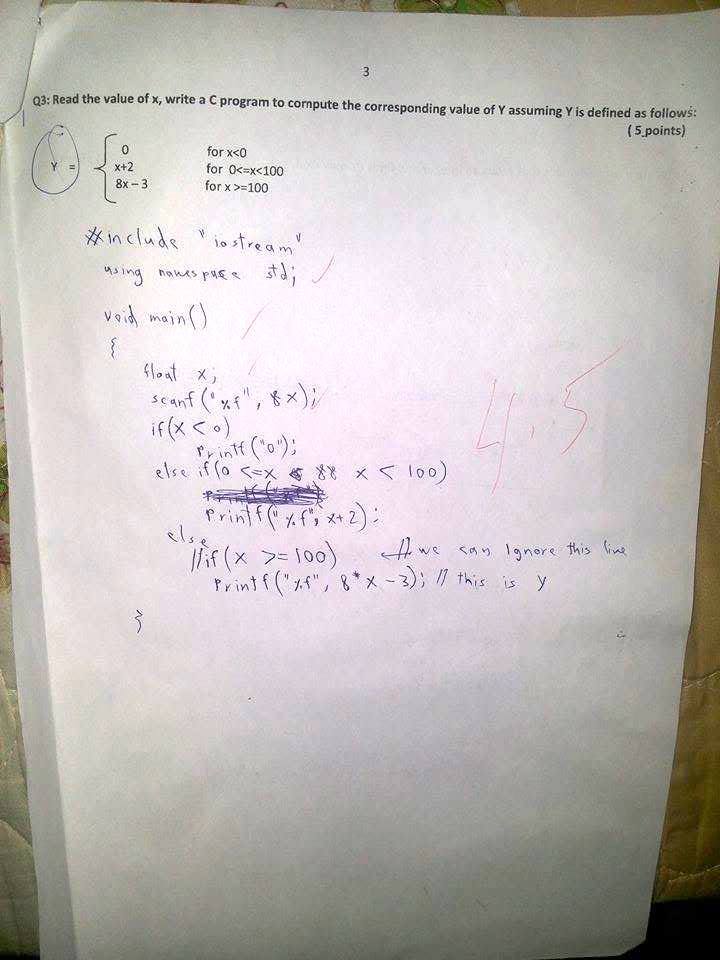 3
Q3: Read the value of x, write a C program to compute the corresponding value of Y assuming Y is defined as follows:
(5 points)
0 for x<0
Y = x+2 for 0<=x<100
8x – 3 for x >=100
#include "iostream"
using namespace std;
void main()
{
float x;
scanf("%f", &x);
if(x < 0)
printf("0");
else if(0 <=x && x < 100)
printf("%f", x+2);
else
//if(x >=100) // we can Ignore this line
printf("%f", 8*x-3); // this is y
}
4.5